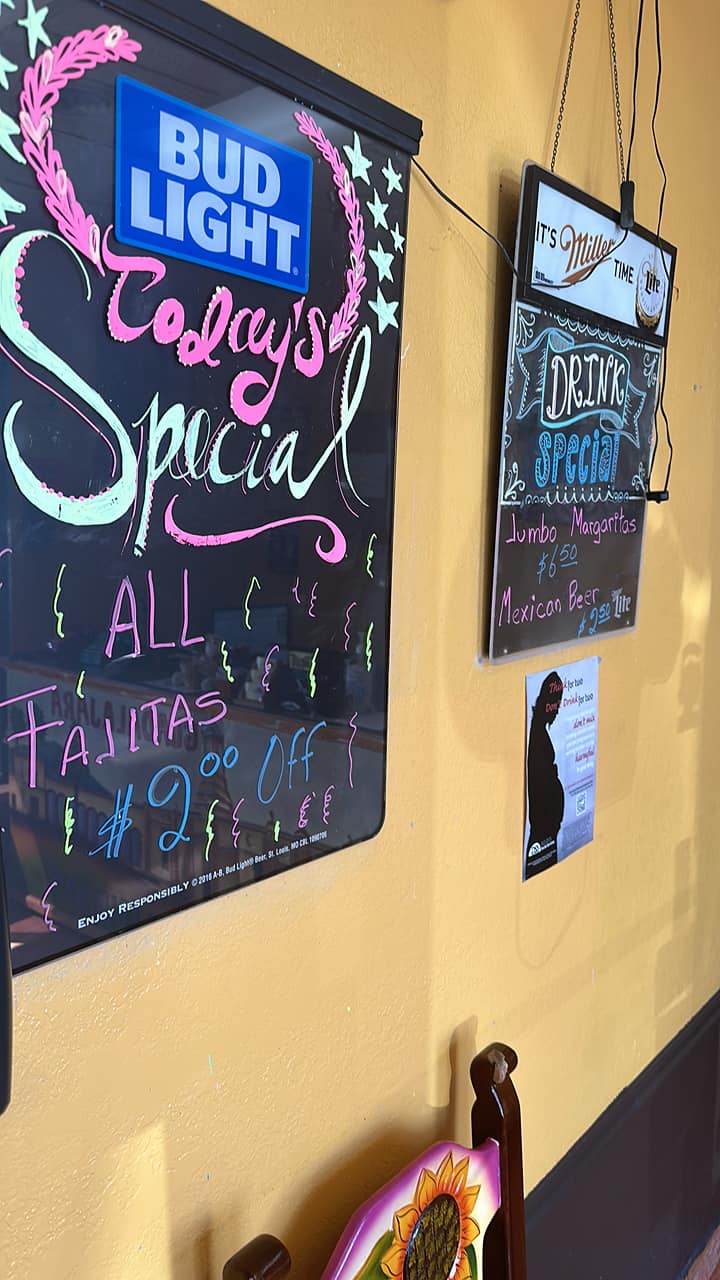 BUD
LIGHT
Today's
Special
ALL
FAJITAS
$2.00 Off
ENJOY RESPONSIBLY © 2016 A-B, Bud Light® Beer, St. Louis, MO CBL 1090706
IT'S Miller TIME
Lite
DRINK
Special
Jumbo Margaritas
$6.50
Mexican Beer
$2.50
Lite
Think for two
Don't Drink for two
don't mix
harmful